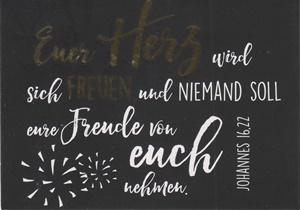 Euer Herz wird
sich FREUEN und NIEMAND SOLL
eure Freude von
euch
nehmen.
JOHANNES 16,22